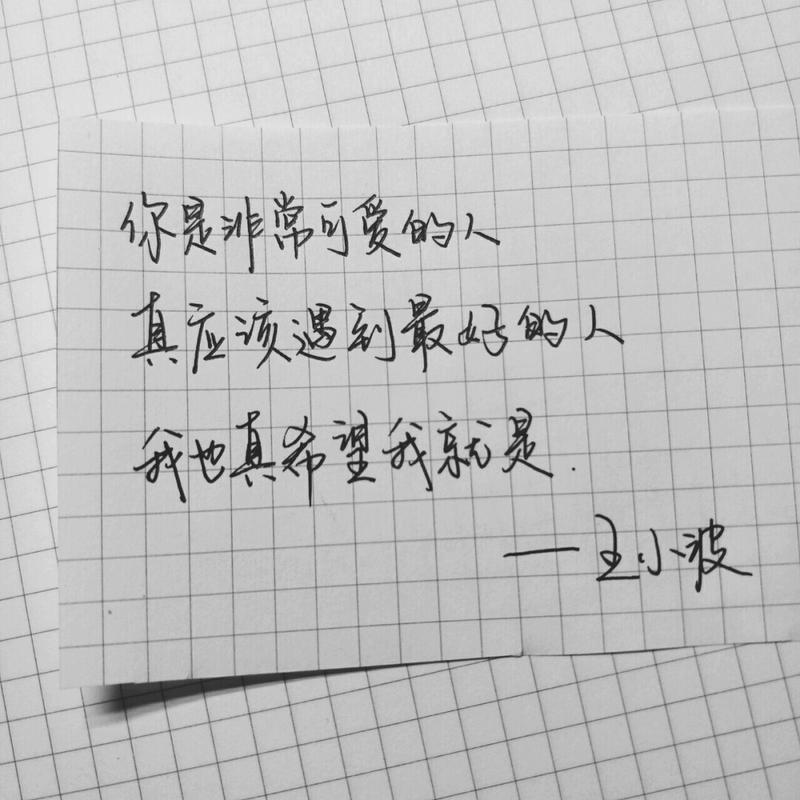 你是非常可爱的人
真应该遇到最好的人
我也真希望我就是.
——王小波